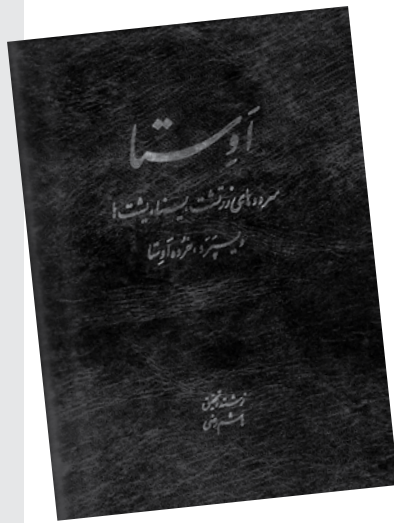 اَوِستا
سرودهای زرتشت، یسنا، یشت‌ها
ویسپرد، خرده‌اوستا
نوشته و تحقیق
هاشم رضی